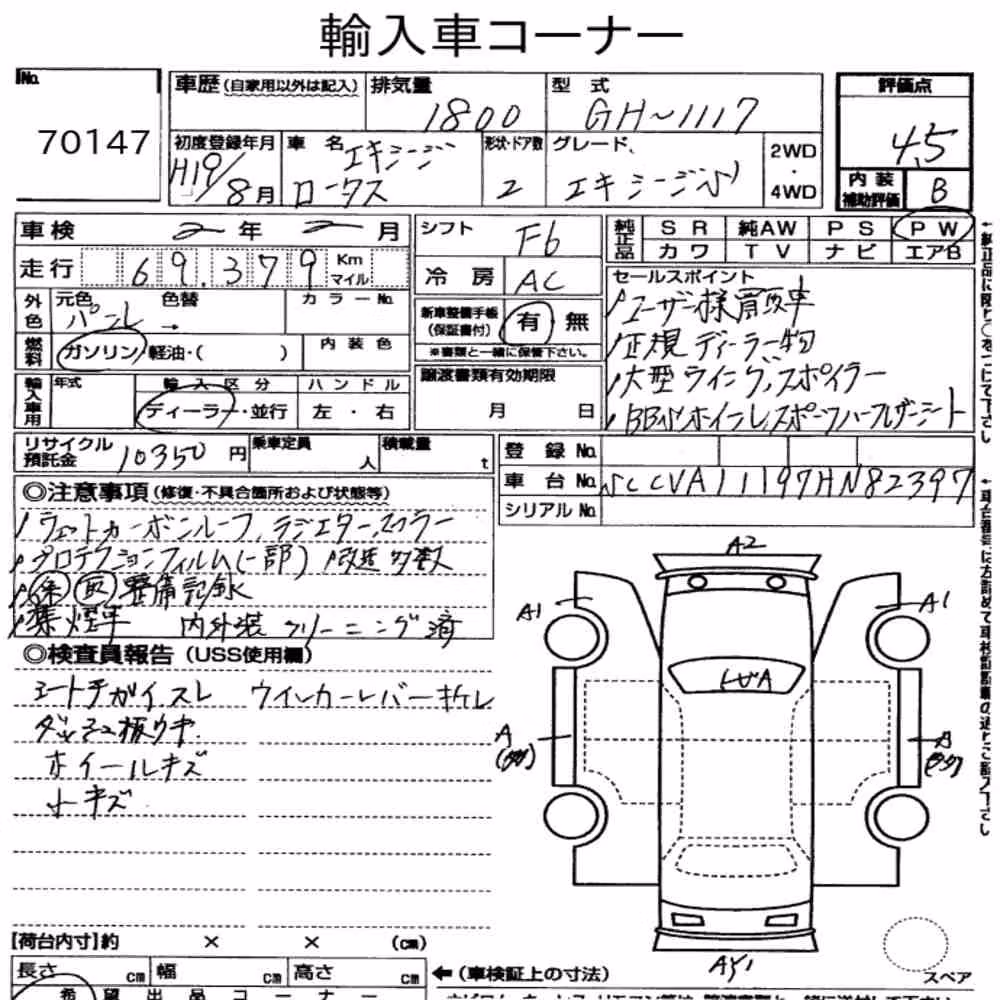 輸入車コーナー
No.
70147
車歴(自家用以外は記入)
排気量
1800
型式
GH~1117
評価点
4.5
初度登録年月
H19/8月
車名
エキシージ
ロータス
形状・ドア数
2
グレード
エキシージS
2WD
・
4WD
内装
補助評価
B
車検
2年2月
シフト
F6
純正品
SR 純AW PS PW
カワ TV ナビ エアB
走行
69,379
Km
マイル
冷房
AC
外色
元色
パール
色替
→
カラーNo.
新車整備手帳
(保証書付)
有・無
※書類と一緒に保管下さい。
セールスポイント
ユーザー様買取車
正規ディーラー物
大型ウイング、スポイラー
燃料
ガソリン・軽油・( )
内装色
輸入車用
年式
輸入区分
ディーラー・並行
ハンドル
左・右
譲渡書類有効期限
月 日
リサイクル
預託金
10350円
乗車定員
人
積載量
t
登録No.
車台No.
SCCVA11197HN82397
シリアルNo.
◎注意事項(修復・不具合箇所および状態等)
プロテクションフィルム(一部) 改造多数
保 取 整備記録
禁煙車 内外装クリーニング済
◎検査員報告(USS使用欄)
シートチガイ、スレ
ウインカーレバーキレ
ダッシュ板ウキ
ホイールキズ
小キズ
A2
A1
A1
A
A
AY1
スペア
【荷台内寸】約 × × (cm)
長さ cm 幅 cm 高さ cm
←(車検証上の寸法)
希望出品コーナー